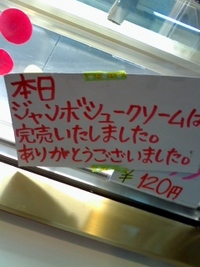 本日
ジャンボシュークリームは
完売いたしました。
ありがとうございました。
¥120円